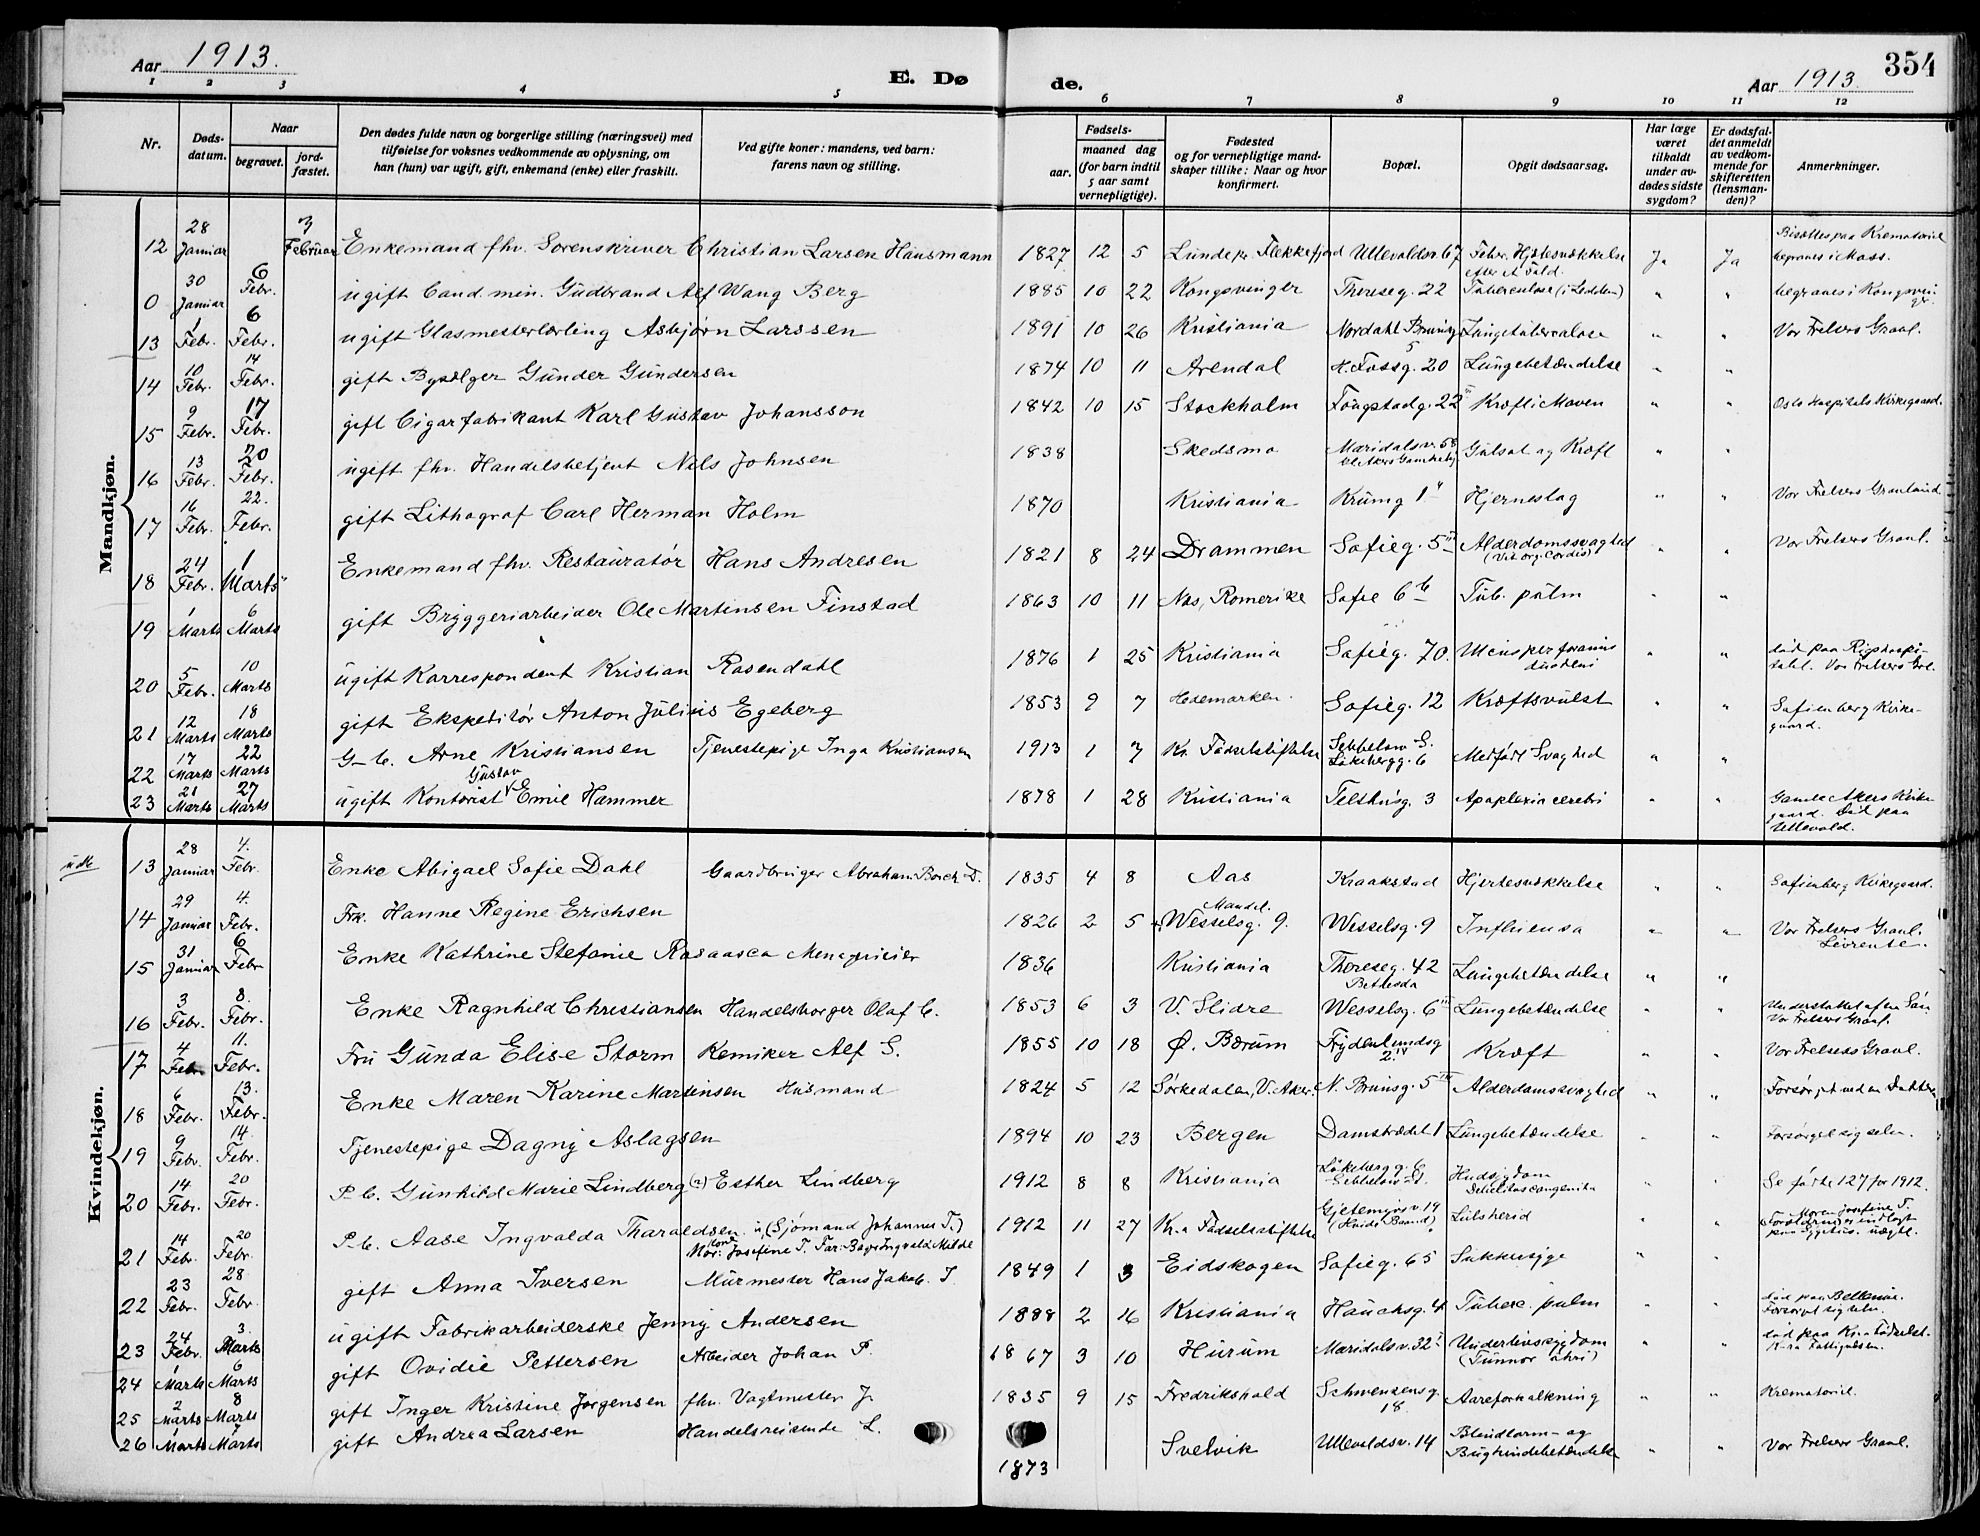 Aar 1913.
E. Dø
de.
Aar 1913.
354
1 2 3 4 5 6 7 8 9 10 11 12
Nr.
Døds-
datum.
Naar
begravet.
jord-
fæstet.
Den dødes fulde navn og borgerlige stilling (næringsvei) med
tilføielse for voksnes vedkommende av oplysning, om
han (hun) var ugift, gift, enkemand (enke) eller fraskilt.
Ved gifte koner: mandens, ved barn:
farens navn og stilling.
Fødsels-
aar.
maaned dag
(for barn indtil
5 aar samt
vernepligtige).
Fødested
og for vernepligtige mand-
skaper tillike: Naar og hvor
konfirmert.
Bopæl.
Opgit dødsaarsag.
Har læge
været
tilkaldt
under av-
dødes sidste
sygdom?
Er dødsfal-
det anmeldt
av vedkom-
mende for
skifteretten
(lensman-
den)?
Anmerkninger.
Mandkjøn.
12 28 Januar 3 Februar Enkemand fhv. Sorenskriver Christian Larsen Hausmann 1827 12 5 Lunde pr. Flekkefjord Ullevoldsv. 67 Feber. Hjertesvækkelse efter et Fald. Ja Ja Bisættes paa Krematoriet begraves i Moss.
0 30 Januar 6 Febr. ugift Cand. min. Gudbrand Alf Wang Berg 1885 10 22 Kongsvinger Thereseg. 22 Tuberculose (i Ledden) " " begraves i Kongsvinger.
13 1 Febr. 6 Febr. ugift Glasmesterlærling Asbjørn Larssen 1891 10 26 Kristiania Nordahl Brunsg 5 Lungetuberculose " " Vor Frelsers Gravl.
14 10 Febr. 14 Febr. gift Bysælger Gunder Gundersen 1874 10 11 Arendal N. Fossg. 20 Lungebetændelse " "
15 9 Febr. 17 Febr. gift Cigarfabrikant Karl Gustav Johansson 1842 10 15 Stockholm Fougstadg. 22 III Kræft i Maven " " Oslo Hospitals Kirkegaard.
16 13 Febr. 20 Febr. ugift fhv. Handelsbetjent Nils Johnsen 1838 Skedsmo Maridalsv. 68 Gl. Akers Gamlehj. Gulsot og Kræft " "
17 16 Febr. 22. Febr. gift Lithograf Carl Herman Holm 1870 Kristiania Krumg 1 II Hjerneslag " " Vor Frelsers Gravlund
18 24 Febr. 1 Marts Enkemand fhv. Restauratør Hans Andresen 1821 8 24 Drammen Sofieg. 5 III Alderdomssvaghed (Vit. org. Cordis) " " Vor Frelsers Gravl.
19 1 Marts 6 Marts gift Bryggeriarbeider Ole Martinsen Finstad 1863 10 11 Nes, Romerike Sofie 6 b Tub. pulm " "
20 5 Febr. 10 Marts ugift Korrespondent Kristian Rosendahl 1876 1 25 Kristiania Sofieg. 70. Ulcus perforans duodeni " " død paa Rigshospitalet. Vor Frelsers Grl.
21 12 Marts 18 Marts gift Ekspeditør Anton Julius Egeberg 1853 9 7 Hedemarken. Sofieg. 12 Kræftsvulst " " Sofienberg Kirkegaard.
22 17 Marts 22 Marts G-b. Arne Kristiansen Tjenestepige Inga Kristiansen 1913 1 7 Kr. Fødselsstiftelse Sebbelow S. Løkebergg. 6 Medfødt Svaghed " "
23 21 Marts 27 Marts ugift Kontorist Gustav Emil Hammer 1878 1 28 Kristiania Telthusg. 3 Apoplexia cerebri " " Gamle Akers Kirkegaard. Død paa Ullevold.
Kvindekjøn.
udt.
13 28 Januar 4. Febr. Enke Abigael Sofie Dahl Gaardbruger Abraham Borch D. 1835 4 8 Aas Kraakstad Hjertesvækkelse " " Sofienberg Kirkegaard.
14 29 Januar 4. Febr. Frk. Hanne Regine Erichsen 1826 2 5 Mandal. Wesselsg. 9. Wesselsg. 9 Influensa " " Vor Frelsers Gravl. Livrente.
15 31 Januar 6 Febr Enke Kathrine Stefanie Rosaasca Menageriejer 1836 Kristiania Thereseg. 42 Bethesda Lungebetændelse " "
16 3 Febr. 8. Febr. Enke Ragnhild Christiansen Handelsborger Olaf C. 1853 6 3 V. Slidre Wesselsg. 6 III Lungebetændelse " " Understøttet af en Søn Vor Frelsers Gravl.
17 4 Febr. 11. Febr. Fru Gunda Elise Storm Kemiker Alf S. 1855 10 18 Ø. Bærum Frydenlundsg 2 IV Kræft " " Vor Frelsers Gravl.
18 6 Febr. 13. Febr. Enke Maren Karine Martinsen Husmand 1824 5 12 Sørkedalen, V. Aker. N. Brunsg. 5 III Alderdomssvaghed " " Forsørget ved en Datter
19 9 Febr. 14. Febr. Tjenestepige Dagny Aslagsen 1894 10 23 Bergen Damstrædet 1 Lungebetændelse " " Forsørget sig selv.
20 14 Febr. 20 Febr. P-b. Gunhild Marie Lindberg (u) Esther Lindberg 1912 8 8 Kristiania Løkebergg. 6 Sebbelow S. Hudsygdom Debilitas congenita " " Se fødte 127 for 1912.
21 14 Febr. 20 Febr. P-b. Aase Ingvalda Tharaldsen. u, (Sjømand Johannes T.) Mor: Josefine T. Far: Ingvald Milde 1912 11 27 Kr.a Fødselsstiftelse Gjetemyrsv. 14 Lulsherid " " Moren Josefine T. (Forældrene) er indlagt paa Sygehus. uægte.
22 23 Febr. 28 Febr. gift Anna Iversen Murmester Hans Jakob. I. 1849 1 3 Eidskogen Sofieg. 65 Sukkersyge " "
23 24 Febr. 3. Marts ugift Fabrikarbeiderske Jenny Andersen 1888 2 16 Kristiania Hauchsg. 4 Tuberc. pulm " " død paa Bellevue. Forsørget sig selv.
24 1 Marts 6 Marts gift Ovidie Pettersen Arbeider Johan P. 1867 3 10 Hurum Maridalsv. 32 I Underlivssygdom " " død paa Kr.a Fødselst. Kr.a Fattigvæsen.
25 2 Marts 8 Marts gift Inger Kristine Jørgensen fhv. Vagtmester J. 1835 9 15 Fredrikshald Schwensensg. 18. Aareforkalkning " " Krematoriet.
26 Marts Marts gift Andrea Larsen Handelsreisende L. 1873 Svelvik Ullevoldsv. 14 Blindtarm- og Bughindebetændelse " " Vor Frelsers Gravl.